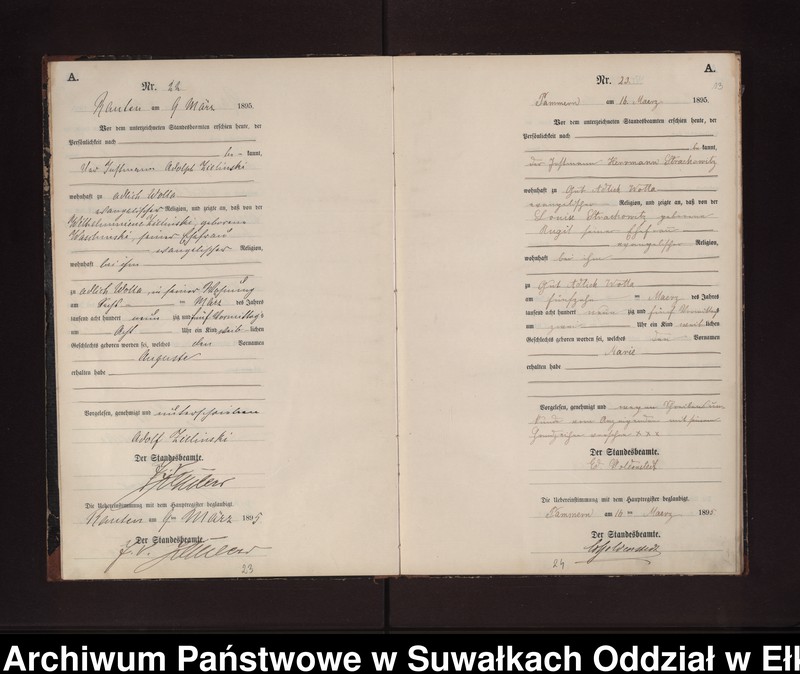 A.
Nr. 22
Kanten am 9 März 1895.
Vor dem unterzeichneten Standesbeamten erschien heute, der
Persönlichkeit nach
be- kannt,
Der Instmann Adolph Zielinski
wohnhaft zu adlich Wolla
evangelischer Religion, und zeigte an, daß von der
Wilhelmine Zielinski, geborene
seiner Ehefrau
evangelischer Religion,
wohnhaft bei ihm
zu adlich Wolla in seiner Wohnung
am März des Jahres
tausend acht hundert neun zig und fünf Vormittags
um Acht Uhr ein Kind weib lichen
Geschlechts geboren worden sei, welches den Vornamen
Auguste
erhalten habe
Vorgelesen, genehmigt und unterschrieben
Adolf Zielinski
Der Standesbeamte.
Die Uebereinstimmung mit dem Hauptregister beglaubigt.
am 9ten März 1895
Der Standesbeamte.
J. V.
23
A.
Nr. 23.
23
am 16. Maerz 1895.
Vor dem unterzeichneten Standesbeamten erschien heute, der
Persönlichkeit nach
be kannt,
der Instmann Herrmann Strachowitz
wohnhaft zu Gut Adlich Wolla
evangelischer Religion, und zeigte an, daß von der
Louise Strachowitz geborene
seiner Ehefrau
evangelischer Religion,
wohnhaft bei ihm
zu Gut Adlich Wolla
am fünfzehn ten Maerz des Jahres
tausend acht hundert neun zig und fünf Vormittags
um zwei Uhr ein Kind weib lichen
Geschlechts geboren worden sei, welches den Vornamen
Marie
erhalten habe
Vorgelesen, genehmigt und wegen Schreibensun
kunde vom Anzeigenden mit seinem
Handzeichen versehen
Der Standesbeamte.
Die Uebereinstimmung mit dem Hauptregister beglaubigt.
am 16 ten Maerz 1895
Der Standesbeamte.
24
Archiwum Państwowe w Suwałkach Oddział w Ełk